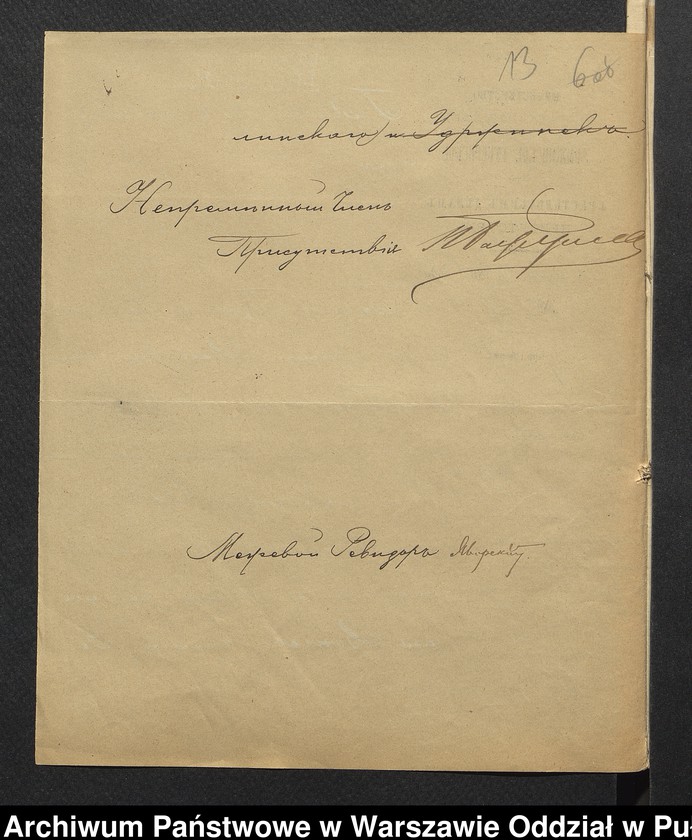 13
линскаго) и
Непремѣнный Членъ
Присутствія
Межевой Ревизоръ
Archiwum Państwowe w Warszawie Oddział w Pu